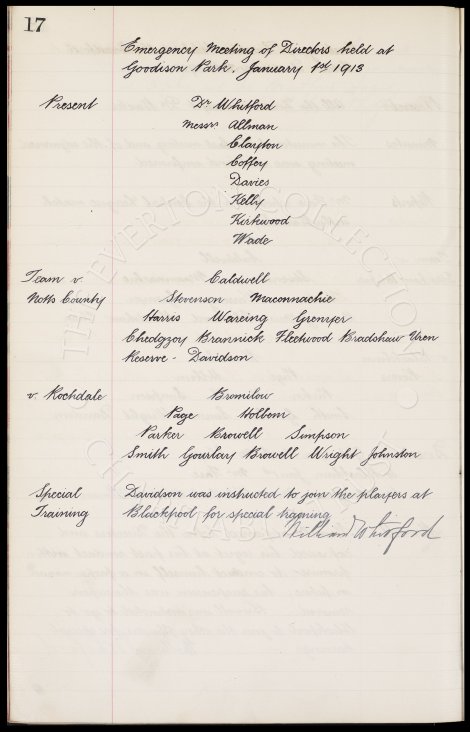 17
Emergency Meeting of Directors held at
Goodison Park. January 1st 1913
Present Dr Whitford
Messrs Allman
Clayton
Coffey
Davies
Kelly
Kirkwood
Wade
Team v. Caldwell
Notts County Stevenson Maconnachie
Harris Wareing Grenyer
Chedgzoy Brannick Fleetwood Bradshaw Uren
Reserve - Davidson
v. Rochdale Bromilow
Page Holbem
Parker Browell Simpson
Smith Gourlay Browell Wright Johnston
Special Davidson was instructed to join the players at
Training Blackpool for special training
William Whitford
THE EVERTON COLLECTION